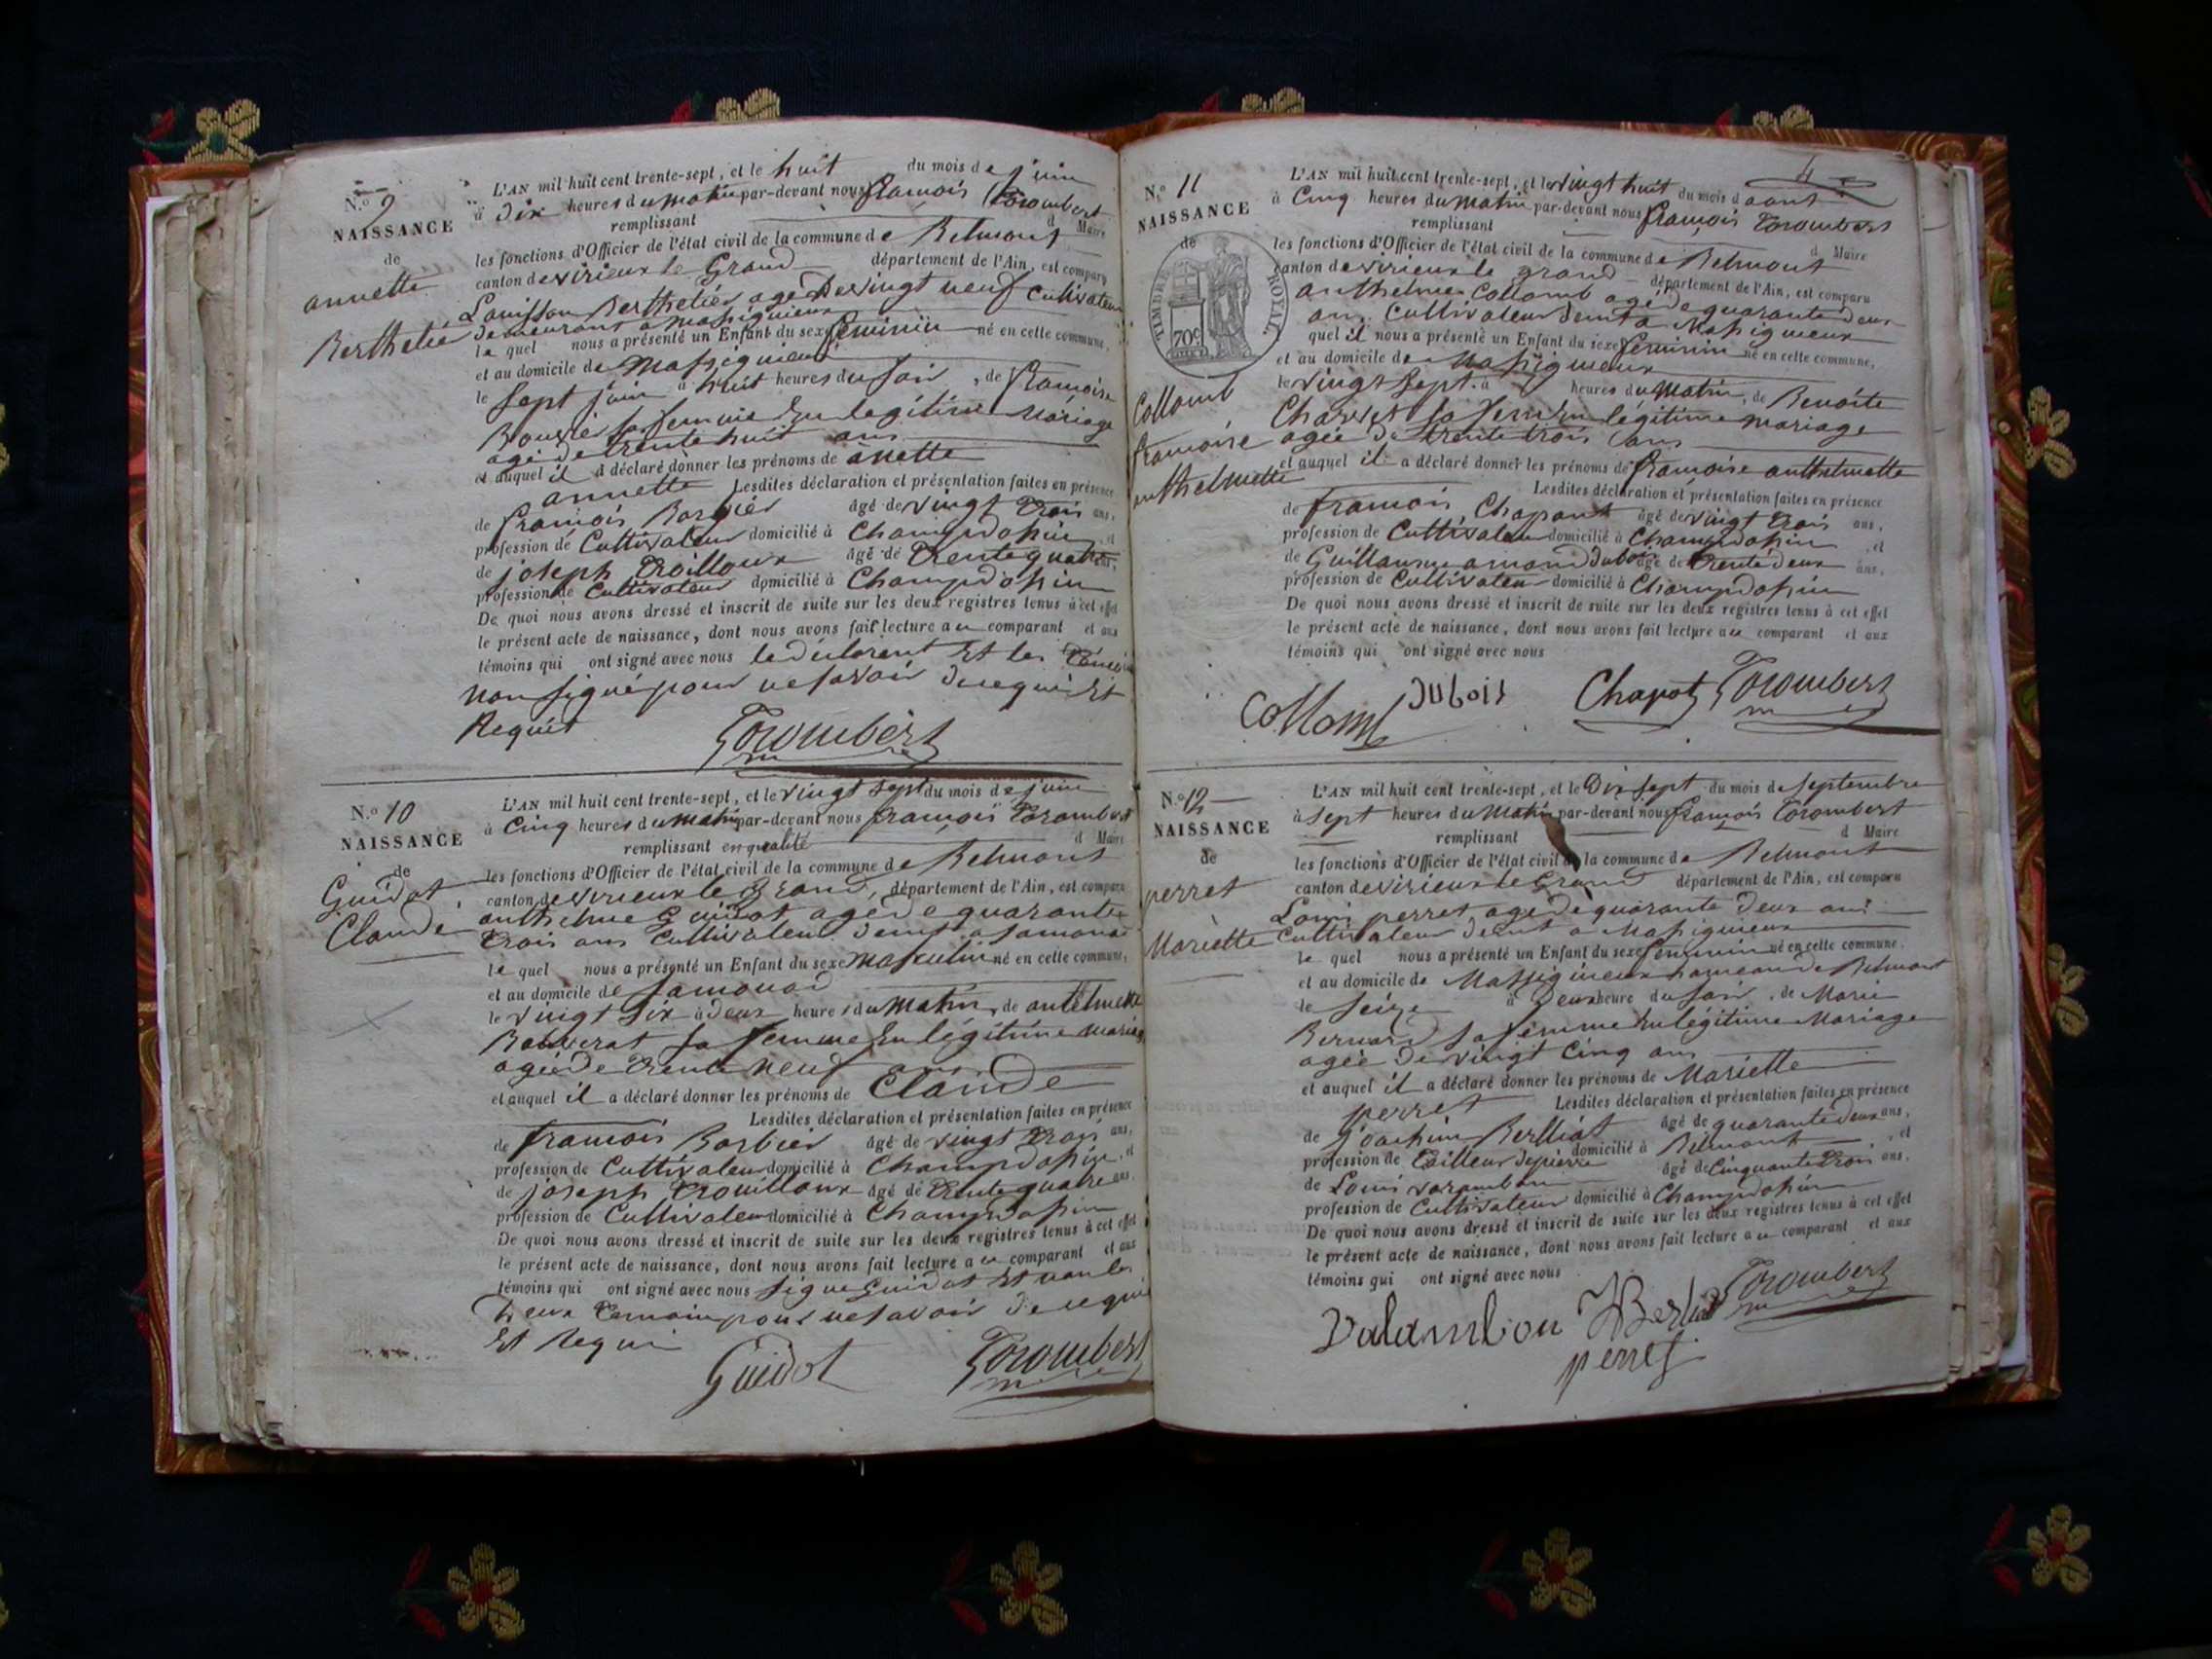 N.º 9
NAISSANCE
de
annette
Berthelié
L'AN mil huit cent trente-sept, et le huit du mois de juin
à Dix heures du matin par-devant nous françois Trombert
remplissant d Maire
les fonctions d'Officier de l'état civil de la commune de Belmont
canton de virieux le Grand département de l'Ain, est comparu
Louisson Berthelier agé de vingt neuf cultivateur
demeurant a Massignieux
le quel nous a présenté un Enfant du sexe feminin né en cette commune,
et au domicile de Massignieux
le sept juin à huit heures du soir, de françoise
sa femme En legitime Mariage
agé de trente huit ans
et auquel il a déclaré donner les prénoms de anette
annette Lesdites déclaration et présentation faites en présence
de françois Barbier âgé de vingt trois ans,
profession de Cultivateur domicilié à Champdosin, et
de joseph Trouilloux âgé de trente quatre ans,
profession de Cultivateur domicilié à Champdosin
De quoi nous avons dressé et inscrit de suite sur les deux registres tenus à cet effet
le présent acte de naissance, dont nous avons fait lecture a ce comparant et aux
témoins qui ont signé avec nous le déclarent Et les témoin
non signé pour ne savoir de ce qui Et
Requit
Trombert
N.º 10
NAISSANCE
de
Guidot
Claude
L'AN mil huit cent trente-sept, et le vingt sept du mois de juin
à Cinq heures du matin par-devant nous françois Trombert
remplissant en qualité d Maire
les fonctions d'Officier de l'état civil de la commune de Belmont
canton de virieux le Grand, département de l'Ain, est comparu
anthelme Guidot agé de quarante
trois ans Cultivateur demt a Samonod
le quel nous a présenté un Enfant du sexe Masculin né en cette commune,
et au domicile de Samonod
le vingt Six à deux heures du matin, de antelmette
sa femme En légitime mariage
agée de trente neuf ans
et auquel il a déclaré donner les prénoms de Claude
Lesdites déclaration et présentation faites en présence
de françois Barbier âgé de vingt trois ans,
profession de Cultivateur domicilié à Champdosin, et
de joseph Trouilloux âgé de trente quatre ans.
profession de Cultivateur domicilié à Champdosin
De quoi nous avons dressé et inscrit de suite sur les deux registres tenus à cet effet
le présent acte de naissance, dont nous avons fait lecture a ce comparant et aux
témoins qui ont signé avec nous signé Guidot Et non les
deux temoin pour ne savoir de ce qui
Et Requi
Guidot Trombert
4
N.º 11
NAISSANCE
de
TIMBRE ROYAL.
70c
Collomb
francoise
anthelmette
L'AN mil huit cent trente-sept, et le vingt huit du mois d aout
à Cinq heures du matin par-devant nous françois Trombert
remplissant d Maire
les fonctions d'Officier de l'état civil de la commune de Belmont
canton de virieux le grand département de l'Ain, est comparu
anthelme Collomb agé de quarante deux
ans Cultivateur demt a Massignieux
quel il nous a présenté un Enfant du sexe feminin né en cette commune,
et au domicile de Massignieux
le vingt Sept à heures du matin, de Benoite
Charvet sa femme En légitime mariage
agée de trente trois ans
et auquel il a déclaré donner les prénoms de françoise anthelmette
Lesdites déclaration et présentation faites en présence
de francois Chapant âgé de vingt trois ans,
profession de Cultivateur domicilié à Champdosin, et
de Guillaume amand Dubois âgé de trente deux ans,
profession de Cultivateur domicilié à Champdosin
De quoi nous avons dressé et inscrit de suite sur les deux registres tenus à cet effet
le présent acte de naissance, dont nous avons fait lecture a ce comparant et aux
témoins qui ont signé avec nous
Collomb Dubois Chapot Trombert
N.º 12
NAISSANCE
de
perret
Mariette
L'AN mil huit cent trente-sept, et le Dix sept du mois de Septembre
à sept heures du Matin par-devant nous françois Trombert
remplissant d Maire
les fonctions d'Officier de l'état civil de la commune de Belmont
canton de virieux le Grand département de l'Ain, est comparu
Louis perret agé de quarante deux ans
Cultivateur demt a Massignieux
le quel nous a présenté un Enfant du sexe feminin né en cette commune.
et au domicile de Massignieux hameau de Belmont
le Seize à deux heure du soir, de Marie
Bernard sa femme En légitime Mariage
agée de vingt Cinq ans
et auquel il a déclaré donner les prénoms de Mariette
perret Lesdites déclaration et présentation faites en présence
de joachim Berlliat âgé de quarante deux ans,
profession de tailleur de pierre domicilié à Belmont, et
de Louis varambon âgé de Cinquante trois ans.
profession de Cultivateur domicilié à Champdosin
De quoi nous avons dressé et inscrit de suite sur les deux registres tenus à cet effet
le présent acte de naissance, dont nous avons fait lecture a ce comparant et aux
témoins qui ont signé avec nous
Valambon Berliat Trombert
perret